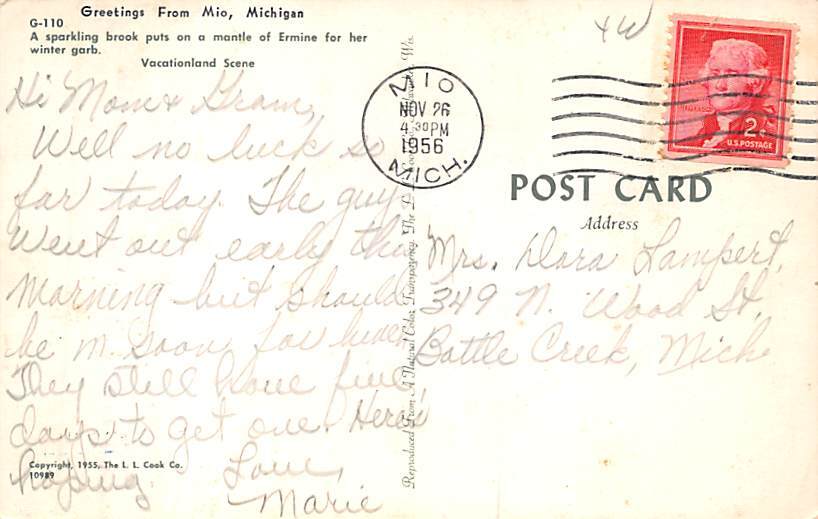 Greetings From Mio, Michigan
G-110
A sparkling brook puts on a mantle of Ermine for her
winter garb.
Vacationland Scene
Hi Mom & Gram,
Well no luck so
far today. The guys
went out early this
morning but should
be in soon for lunch
They still have five
days to get one. Here's
hoping.
Love,
Marie
Copyright, 1955, The L. L. Cook Co.
10989
Reproduced From A Natural Color Transparency, The L. L. Cook Co., Milwaukee, Wis.
MIO
NOV 26
4 30 PM
1956
MICH.
JEFFERSON
2¢
U.S. POSTAGE
POST CARD
Address
Mrs. Dora Lampert,
349 N. Wood St,
Battle Creek, Mich.